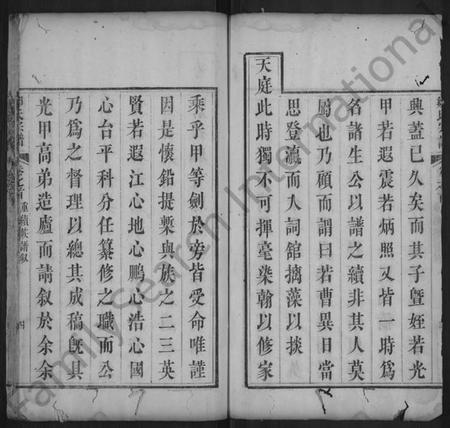 興蓋已久矣而其子暨姪若光
甲若遐震若炳照又皆一時爲
名諸生公以譜之續非其人莫
屬也乃顧而謂曰若曹異日當
思登瀛而入詞舘摛藻以掞
天庭此時獨不可揮毫染翰以修家
乘乎甲等劍於旁皆受命唯謹
因是懷鉛提槧與族之二三英
賢若遐江心地心鵬心浩心國
心台平科分任纂修之職而公
乃爲之督理以總其成稿既具
光甲高弟造廬而請叙於余余
重續族譜叙
四
Family Search International